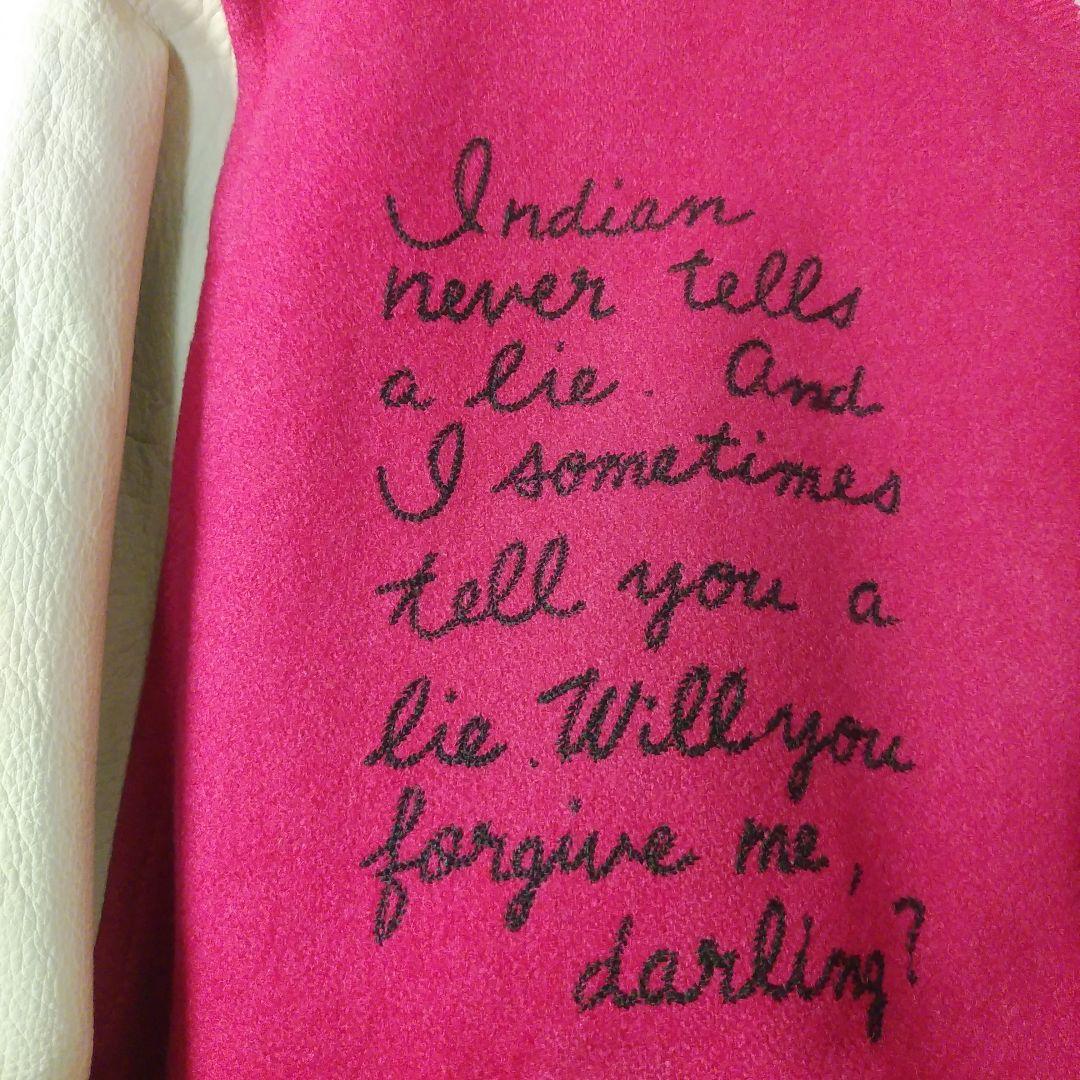 Indian
never tells
a lie. And
I sometimes
tell you a
lie. Will you
forgive me,
darling?